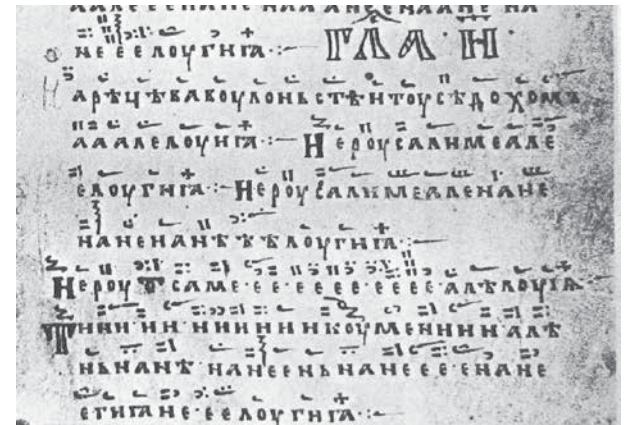 НЕЕЕЛОУГИꙖ ·:— ГЛА· И·
АРѢЦѢВАВОУЛОНЬСТѢИТОУСѢДОХОМЪ
АААЛЕЛОУГИꙖ ·:— ИЕРОУСАЛИМЕАЛЕ
ЕЛОУГИꙖ ·:— ИЕРОУСАЛИМЕАЛЕНАНЕ
НАНЕНАНѢѢѢЛОУГИꙖ ·:—
ИЕРОУ САМЕ·ЕЕ·ЕЕ·ЕЕ·ЕЕЕЕ·АЛѢЛОУГꙖ·—
ТИИИ·ИИ·ИИИИИИКОУМЕНИИИИ АЛѢ
НЬНАНѢ НАНЕЕНЬНАНЕЕЕ·ЕНАНЕ
ЕГИГАНЕ·ЕЕЛОУГИꙖ ·:—